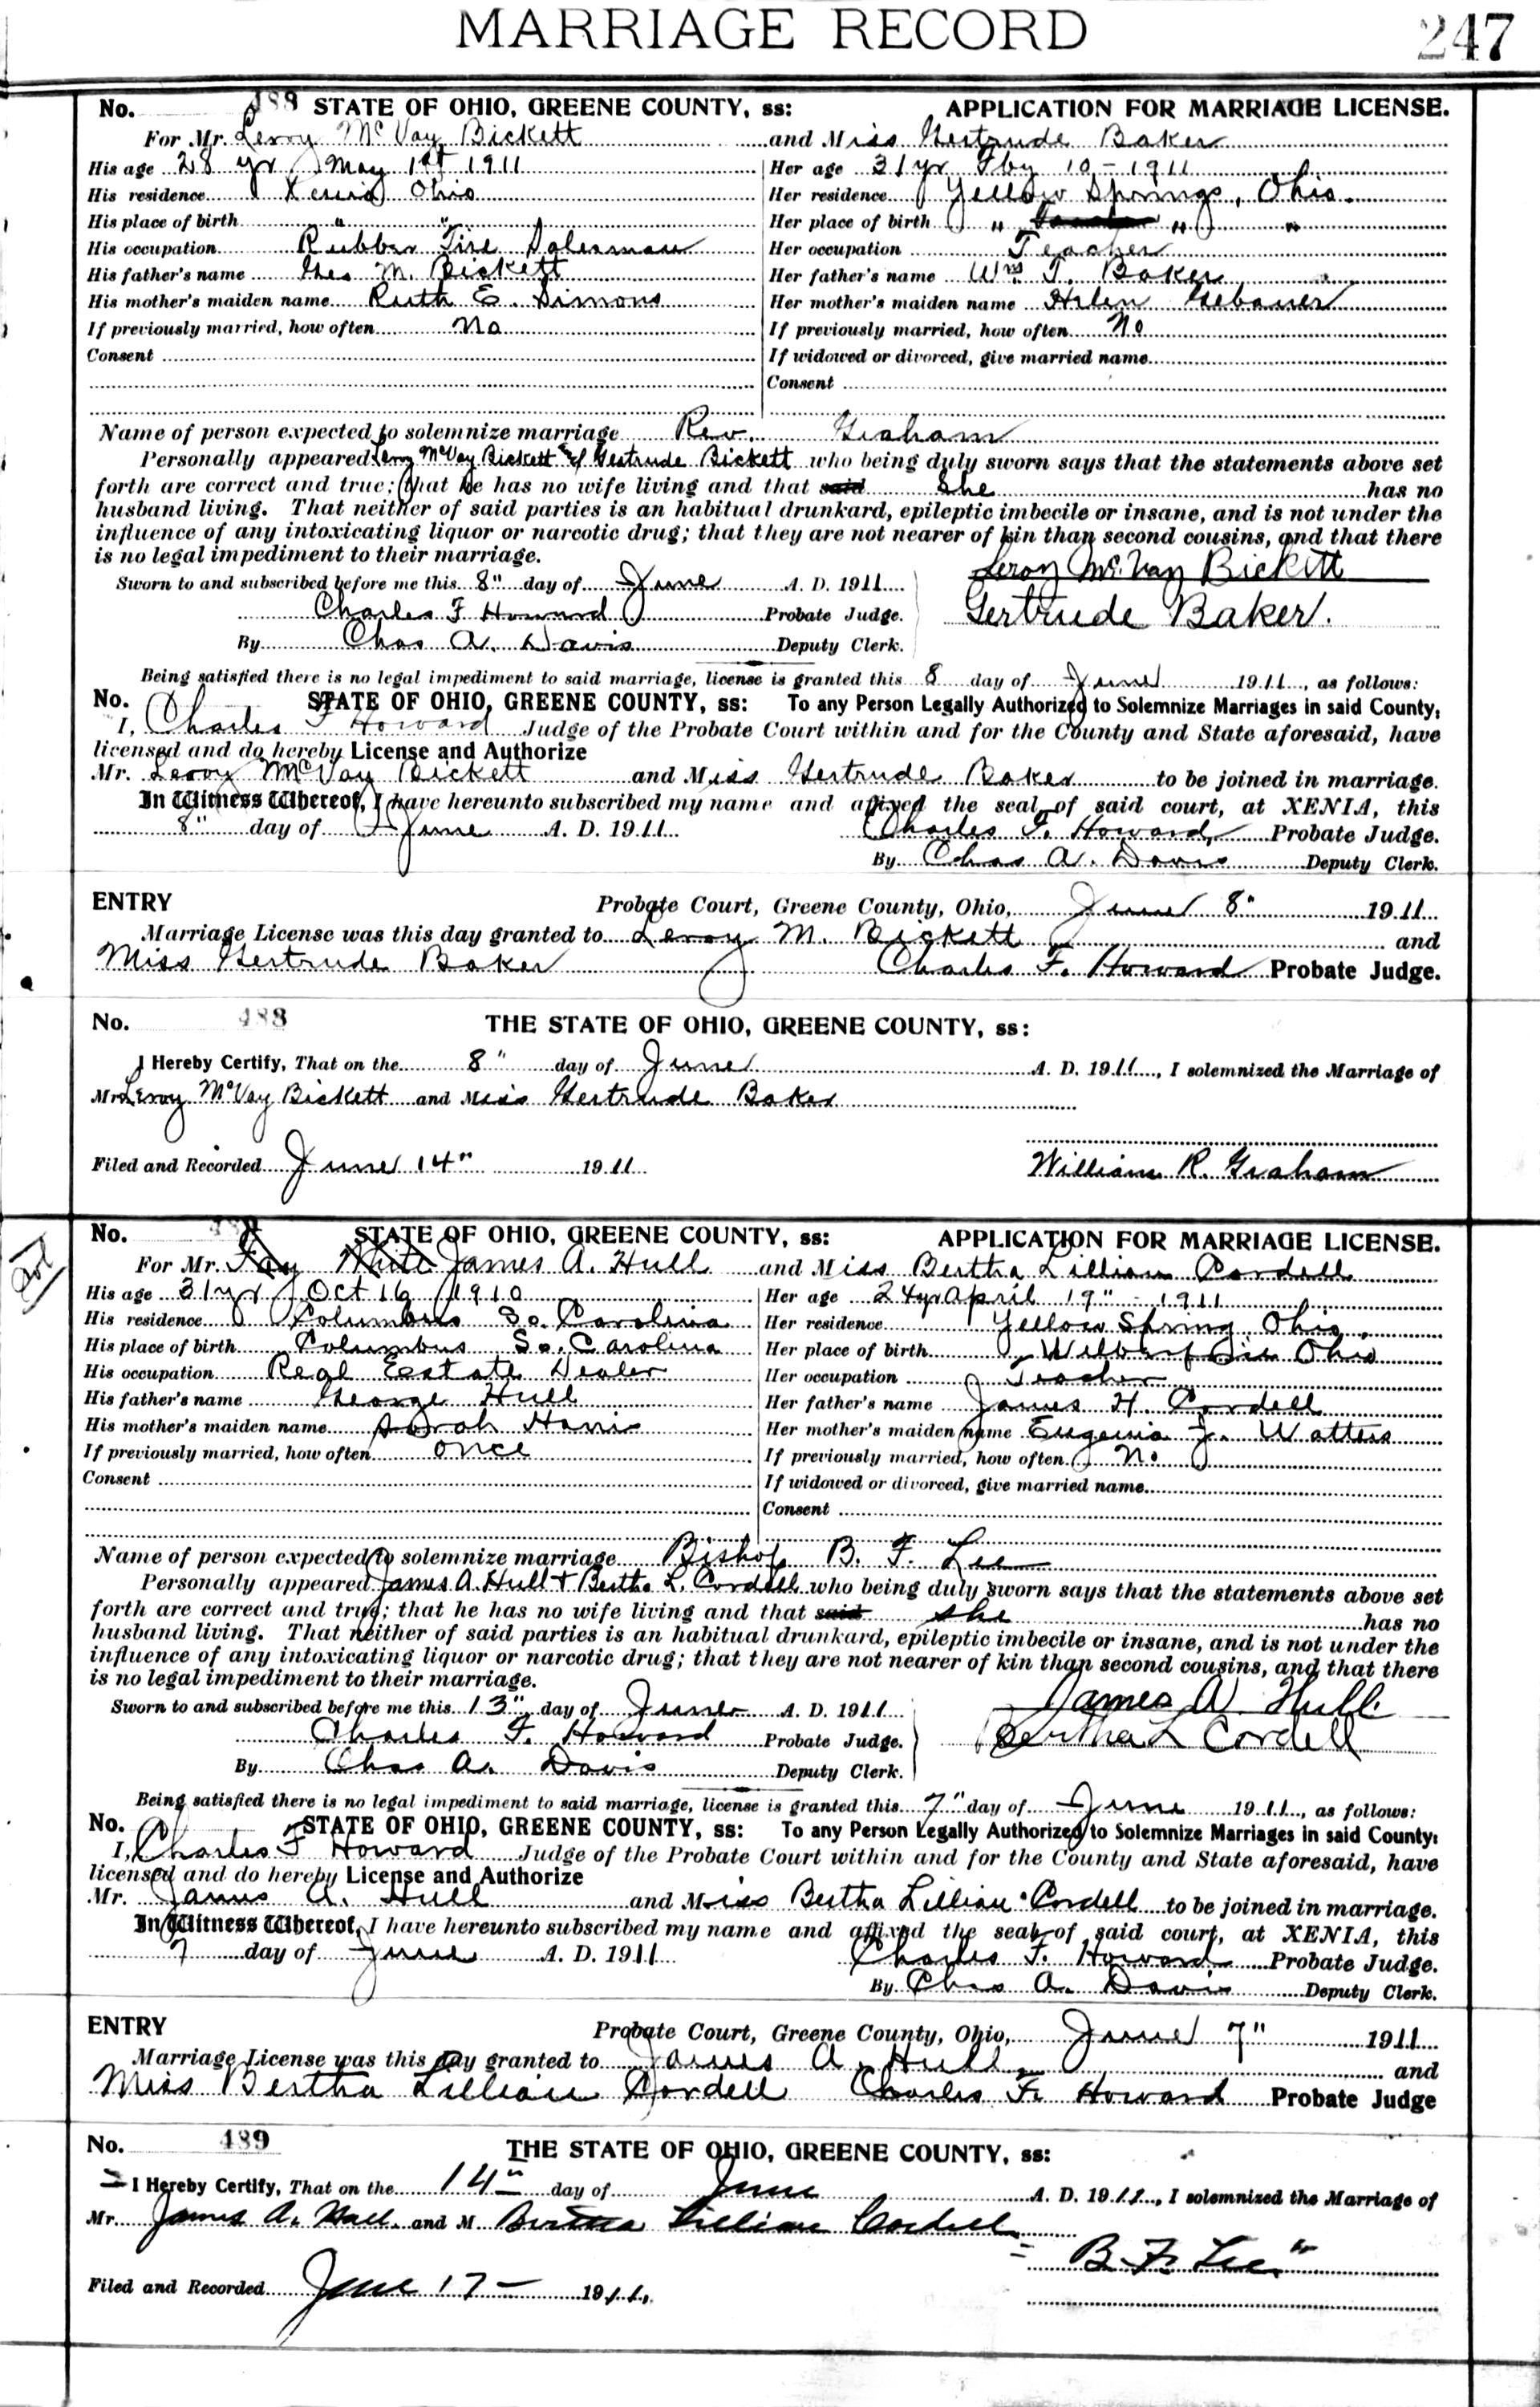 MARRIAGE RECORD 247
No. 488 STATE OF OHIO, GREENE COUNTY, ss: APPLICATION FOR MARRIAGE LICENSE.
For Mr. Leroy McVay Bickett and Miss Gertrude Baker
His age 28 yr May 1st 1911 Her age 31 yr Feby 10 - 1911
His residence Xenia Ohio Her residence Yellow Springs, Ohio.
His place of birth " " Her place of birth " " "
His occupation Rubber Tire Salesman Her occupation Teacher
His father's name Geo M. Bickett Her father's name Wm T. Baker
His mother's maiden name Ruth E. Simons Her mother's maiden name Helen Gebauer
If previously married, how often no If previously married, how often No
Consent If widowed or divorced, give married name
Consent
Name of person expected to solemnize marriage Rev. Graham
Personally appeared Leroy McVay Bickett & Gertrude Bickett who being duly sworn says that the statements above set
forth are correct and true; that he has no wife living and that said She has no
husband living. That neither of said parties is an habitual drunkard, epileptic imbecile or insane, and is not under the
influence of any intoxicating liquor or narcotic drug; that they are not nearer of kin than second cousins, and that there
is no legal impediment to their marriage.
Leroy McVay Bickett
Sworn to and subscribed before me this 8" day of June A. D. 1911
Charles F Howard Probate Judge. Gertrude Baker.
By Chas A. Davis Deputy Clerk.
Being satisfied there is no legal impediment to said marriage, license is granted this 8 day of June 1911, as follows:
No. STATE OF OHIO, GREENE COUNTY, ss: To any Person Legally Authorized to Solemnize Marriages in said County,
I, Charles F Howard Judge of the Probate Court within and for the County and State aforesaid, have
licensed and do hereby License and Authorize
Mr. Leroy McVay Bickett and Miss Gertrude Baker to be joined in marriage.
In Witness Whereof, I have hereunto subscribed my name and affixed the seal of said court, at XENIA, this
8" day of June A. D. 1911 Charles F. Howard, Probate Judge.
By Chas A. Davis Deputy Clerk.
ENTRY Probate Court, Greene County, Ohio, June 8" 1911
Marriage License was this day granted to Leroy M. Bickett and
Miss Gertrude Baker Charles F. Howard Probate Judge.
No. 488 THE STATE OF OHIO, GREENE COUNTY, ss:
I Hereby Certify, That on the 8" day of June A. D. 1911, I solemnized the Marriage of
Mr Leroy McVay Bickett and Miss Gertrude Baker
Filed and Recorded June 14" 1911 William R. Graham
No. STATE OF OHIO, GREENE COUNTY, ss: APPLICATION FOR MARRIAGE LICENSE.
For Mr. James A. Hull and Miss Bertha Lillian Cordell
His age 31 yr Oct 16 1910 Her age 24 yr April 19" - 1911
His residence Columbus So. Carolina Her residence Yellow Spring, Ohio.
His place of birth Columbus So. Carolina Her place of birth Ohio
His occupation Real Estate Dealer Her occupation Teacher
His father's name George Hull Her father's name James H. Cordell
His mother's maiden name Sarah Her mother's maiden name Eugenia J. Watters
If previously married, how often once If previously married, how often No
Consent If widowed or divorced, give married name
Consent
Name of person expected to solemnize marriage Bishop B. F. Lee
Personally appeared James A. Hull & Bertha L. Cordell who being duly sworn says that the statements above set
forth are correct and true; that he has no wife living and that said she has no
husband living. That neither of said parties is an habitual drunkard, epileptic imbecile or insane, and is not under the
influence of any intoxicating liquor or narcotic drug; that they are not nearer of kin than second cousins, and that there
is no legal impediment to their marriage.
James A. Hull
Sworn to and subscribed before me this 13" day of June A. D. 1911
Charles F. Howard Probate Judge. Bertha L Cordell
By Chas A. Davis Deputy Clerk.
Being satisfied there is no legal impediment to said marriage, license is granted this 7" day of June 1911, as follows:
No. STATE OF OHIO, GREENE COUNTY, ss: To any Person Legally Authorized to Solemnize Marriages in said County:
I, Charles F Howard Judge of the Probate Court within and for the County and State aforesaid, have
licensed and do hereby License and Authorize
Mr. James A. Hull and Miss Bertha Lillian Cordell to be joined in marriage.
In Witness Whereof, I have hereunto subscribed my name and affixed the seal of said court, at XENIA, this
7 day of June A. D. 1911 Charles F. Howard Probate Judge.
By Chas A. Davis Deputy Clerk.
ENTRY Probate Court, Greene County, Ohio, June 7" 1911
Marriage License was this day granted to James A. Hull and
Miss Bertha Lillian Cordell Charles F. Howard Probate Judge
No. 489 THE STATE OF OHIO, GREENE COUNTY, ss:
I Hereby Certify, That on the 14" day of June A. D. 1911, I solemnized the Marriage of
Mr. James A. Hull and M Bertha Lillian Cordell
B. F. Lee
Filed and Recorded June 17 - 1911,